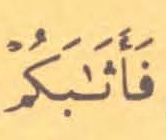 فَأَثَٰبَكُمْ